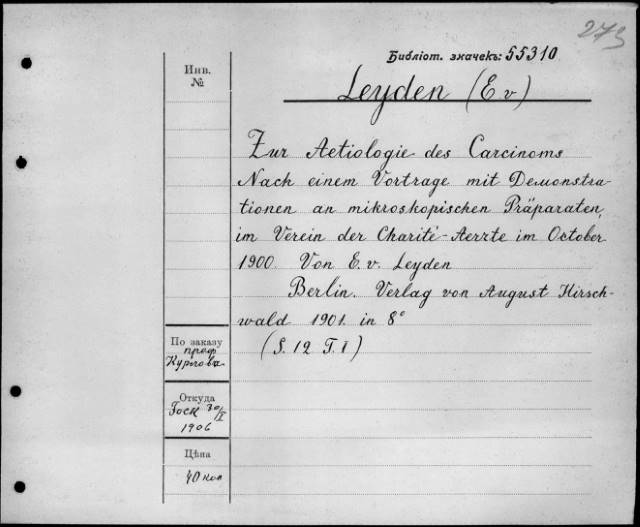 273
Библіот. значекъ: 55310
Инв.
№
Leyden (E v)
Zur Aetiologie des Carcinoms
Nach einem Vortrage mit Demonstra-
tionen an mikroskopischen Präparaten,
im Verein der Charité-Aerzte im October
1900. Von E. v. Leyden
Berlin. Verlag von August Hirsch-
wald 1901. in 8°
(S. 12 T. 1)
По заказу
проф
Откуда
1906
Цѣна
40 коп